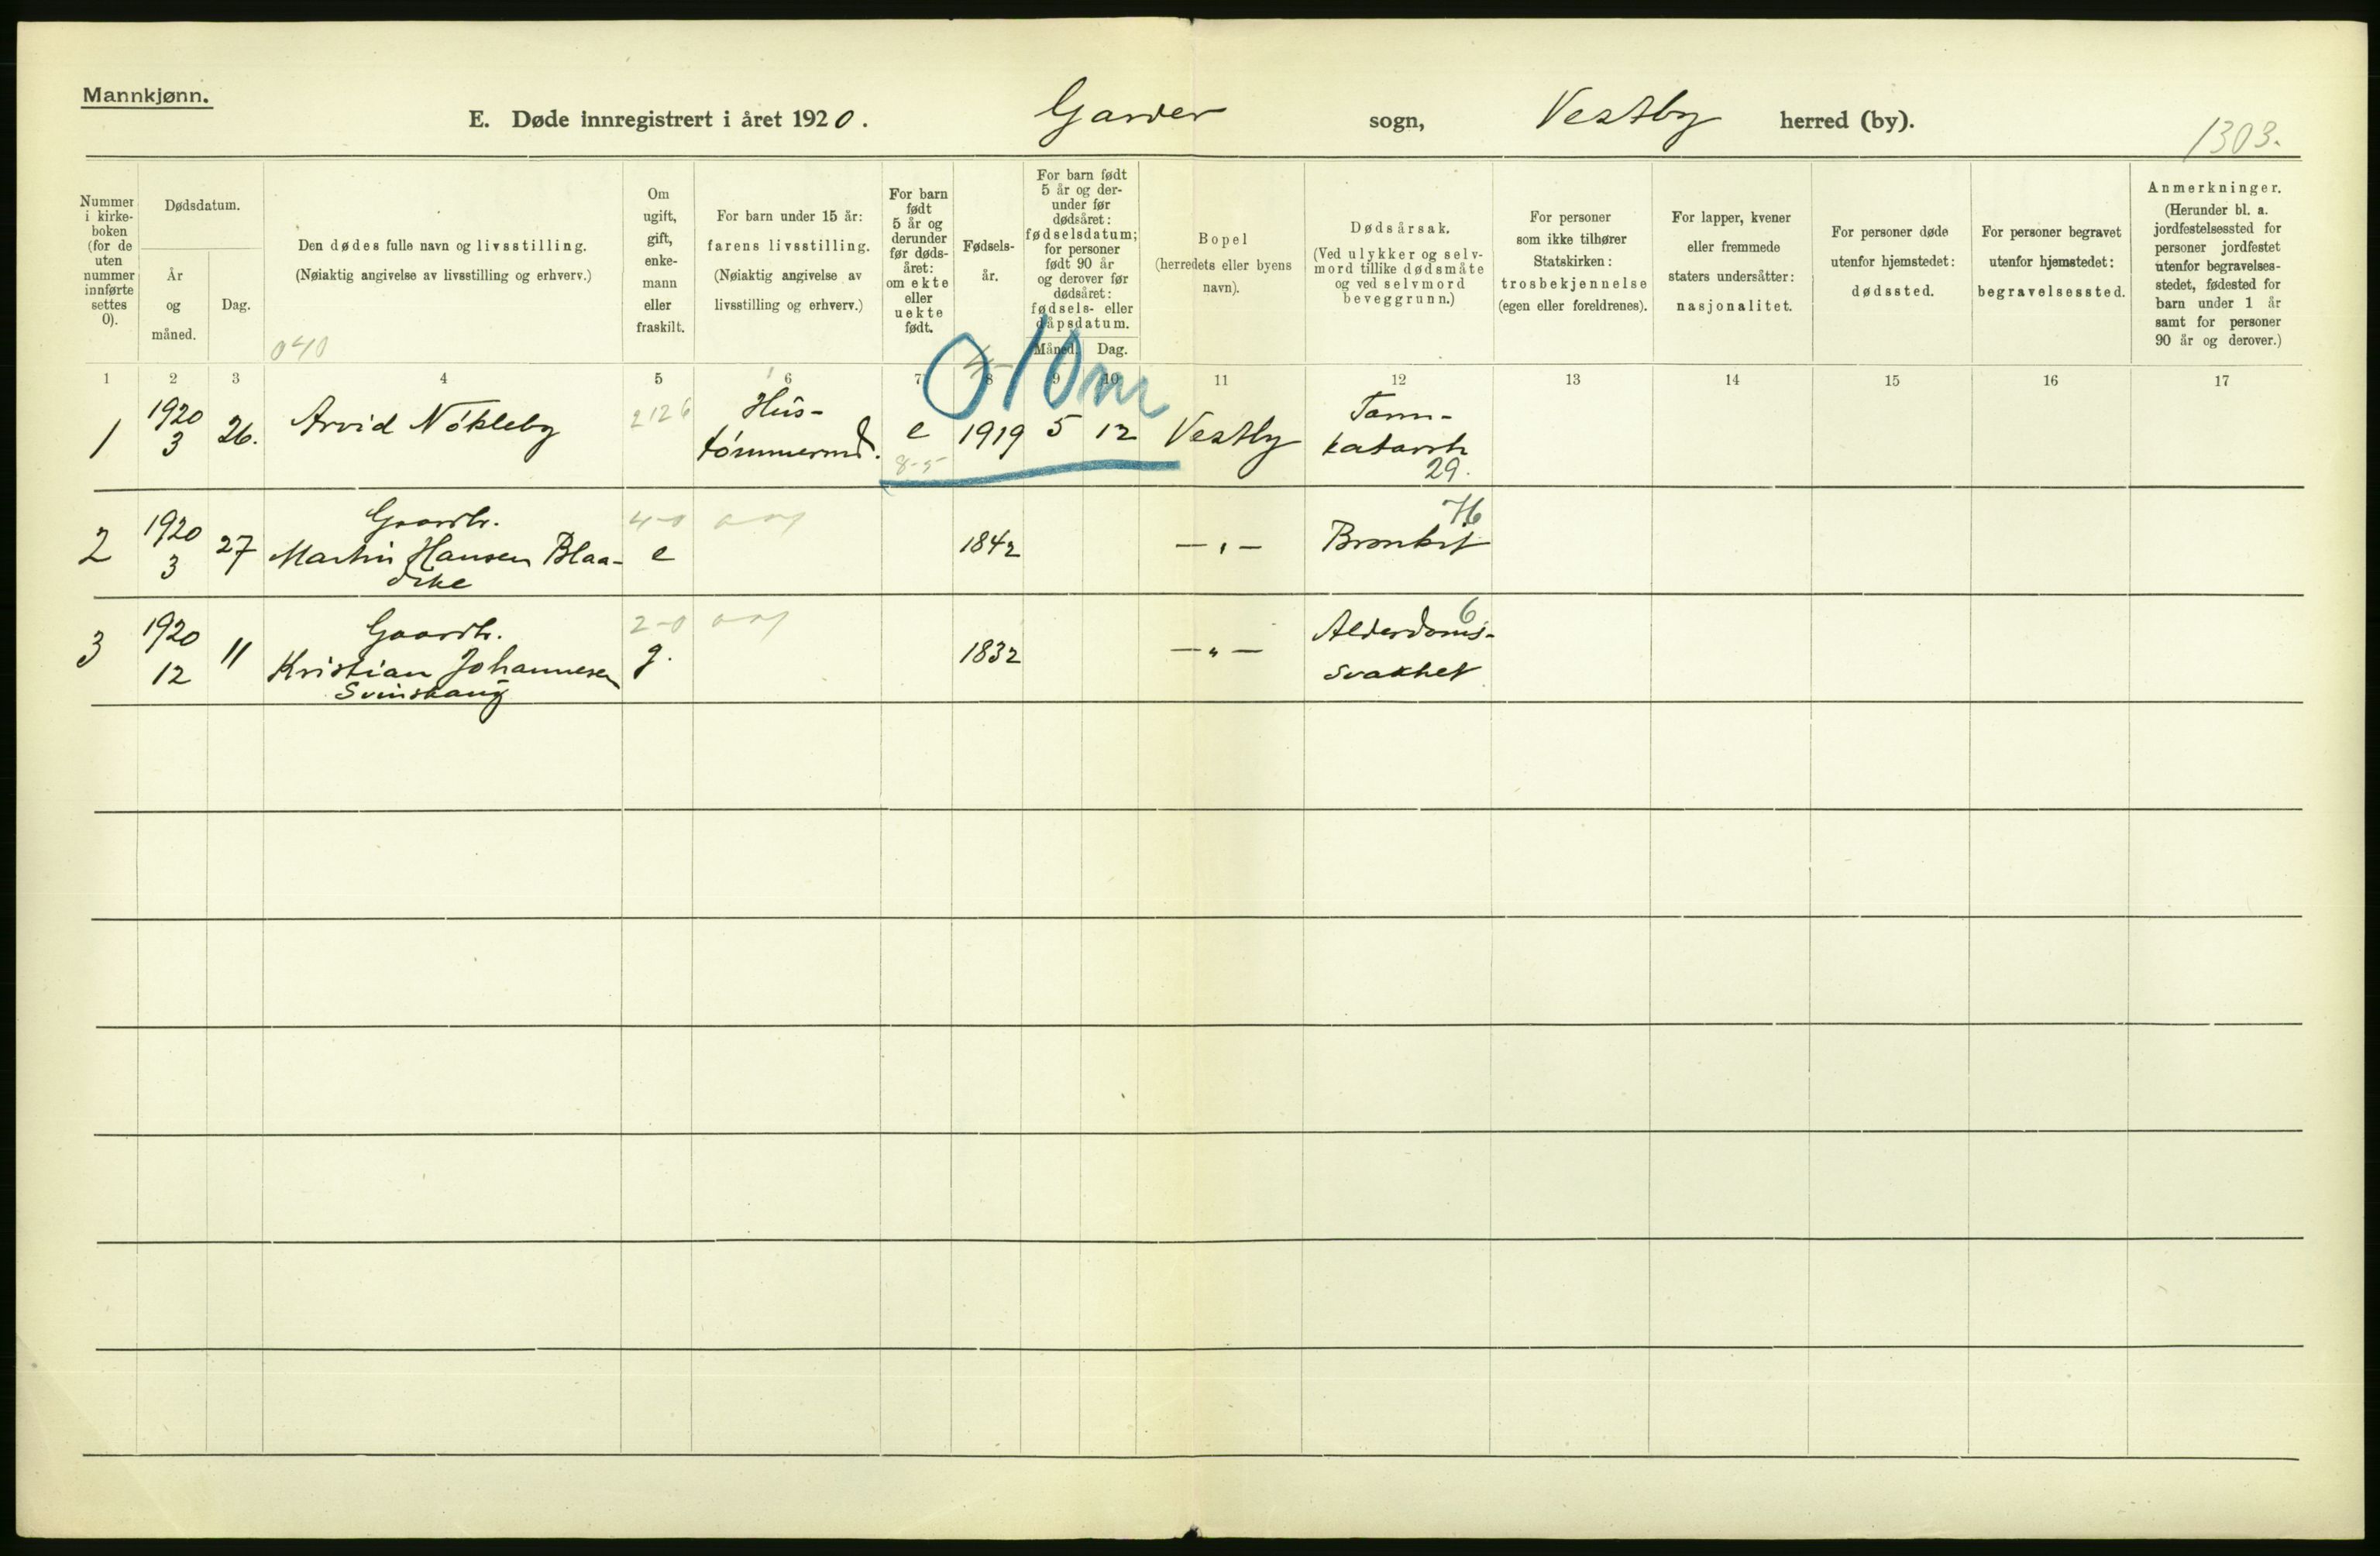 Mannkjønn.
E. Døde innregistrert i året 1920. Garder sogn, Vestby herred (by).
1303.
Nummer i kirke- boken (for de uten nummer innførte settes 0).
Dødsdatum.
År og måned.
Dag.
Den dødes fulle navn og livsstilling.
(Nøiaktig angivelse av livsstilling og erhverv.)
040
Om ugift, gift, enke- mann eller fraskilt.
For barn under 15 år:
farens livsstilling.
(Nøiaktig angivelse av
livsstilling og erhverv.)
For barn født 5 år og derunder før døds- året: om ekte eller uekte født.
Fødsels- år.
For barn født 5 år og der- under før dødsåret: fødselsdatum; for personer født 90 år og derover før dødsåret: fødsels- eller dåpsdatum.
Måned. Dag.
Bopel
(herredets eller byens
navn).
Dødsårsak.
(Ved ulykker og selv-
mord tillike dødsmåte
og ved selvmord
beveggrunn.)
For personer
som ikke tilhører
Statskirken:
trosbekjennelse
(egen eller foreldrenes).
For lapper, kvener
eller fremmede
staters undersåtter:
nasjonalitet.
For personer døde
utenfor hjemstedet:
dødssted.
For personer begravet
utenfor hjemstedet:
begravelsessted.
Anmerkninger.
(Herunder bl. a.
jordfestelsessted for
personer jordfestet
utenfor begravelses-
stedet, fødested for
barn under 1 år
samt for personer
90 år og derover.)
1 2 3 4 5 6 7 8 9 10 11 12 13 14 15 16 17
010m
1 1920 3 26. Arvid Nökleby 2126 Hus- tömmerm. e 8-5 1919 5 12 Vestby Tarm- katarrh 29.
2 1920 3 27 Gaardbr. Martin Hansen Blaa- 4-0 e 1842 — " — Bronkit 76
3 1920 12 11 Gaardbr. Kristian Johannesen Svinskaug 2-0 g. 1832 — " — Alderdoms- svakhet 6